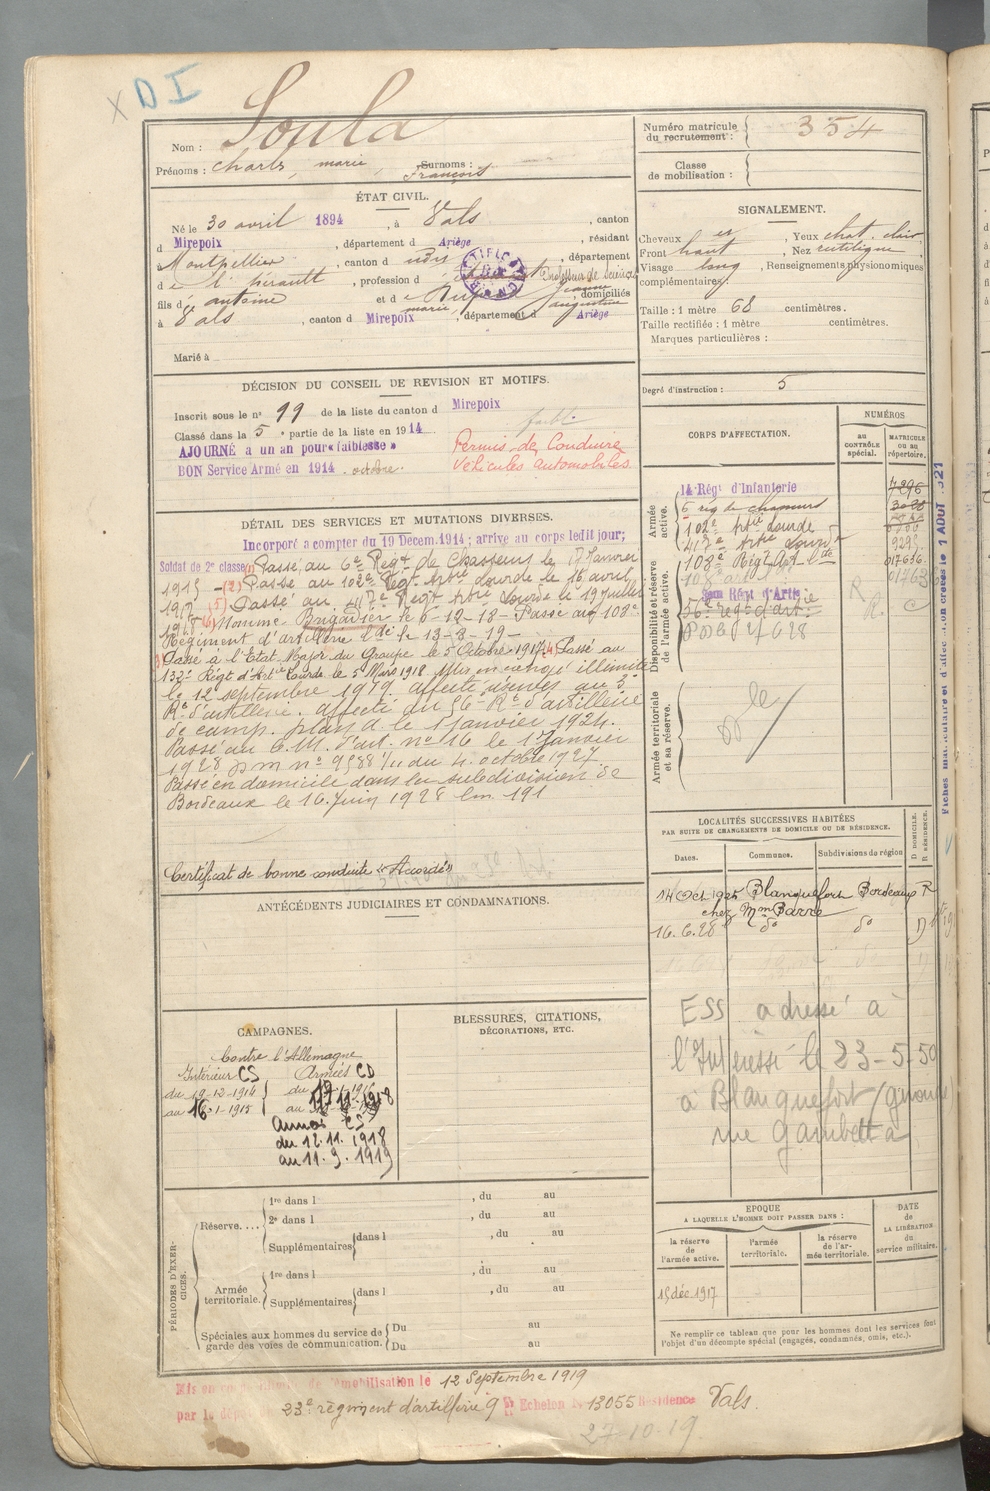 X D I
Nom : Soula
Prénoms : Charles, marie, François Surnoms :
Numéro matricule du recrutement : 354
Classe de mobilisation :
ÉTAT CIVIL.
Né le 30 avril 1894, à Vals, canton
d Mirepoix, département d Ariège, résidant
Montpellier, canton d udis, département
de l'hérault, profession d Professeur de Sciences
fils d' antoine et d e Jeanne
marie, augustine, domiciliés
à Vals, canton d Mirepoix, département d Ariège
Marié à
SIGNALEMENT.
Cheveux , Yeux chat. clair,
Front haut , Nez rectiligne,
Visage long, Renseignements physionomiques
complémentaires:
Taille : 1 mètre 68 centimètres.
Taille rectifiée : 1 mètre centimètres.
Marques particulières :
Degré d'instruction : 5
DÉCISION DU CONSEIL DE REVISION ET MOTIFS.
Inscrit sous le n° 19 de la liste du canton d Mirepoix
Classé dans la 5e partie de la liste en 1914
AJOURNÉ à un an pour « faiblesse »
BON Service Armé en 1914. octobre.
faible
Permis de Conduire
Véhicules automobiles
CORPS D'AFFECTATION.
NUMÉROS
AU CONTRÔLE spécial.
MATRICULE ou au répertoire.
Armée active.
14 Régt d'Infanterie 7296
6 rég de chasseurs 3028
102e Artie Lourde
117e Artie Lourde 9295
Disponibilité et réserve de l'armée active.
108e Régt Art lde 017636
3ème Régt d'Artie
56e régt d'artie
Armée territoriale et sa réserve.
R
R. C
DÉTAIL DES SERVICES ET MUTATIONS DIVERSES.
Incorporé à compter du 19 Décem. 1914 ; arrivé au corps ledit jour;
Soldat de 2e classe (1) Passé au 6e Régt de Chasseurs le 17 Janvier
1915 - (2) Passé au 102e Régt Artie Lourde le 16 avril
1917 (5) Passé au 117e Régt Artie Lourde le 19 juillet
1918 (6) Nommé Brigadier le 6-12-18 - Passé au 108e
Régiment d'artillerie lde le 13-3-19-
3) Passé à l'Etat Major du Groupe le 5 Octobre 1917 (4) Passé au
132e Régt d'Artie Lourde le 5 Mars 1918 Mis en congé illimité
le 12 septembre 1919. affecté réserves au 3e
Rt d'artillerie. affecté au 56e Rt d'artillerie
de camp. plan A le 1 janvier 1924.
Passé au C.M. d'art. n° 16 le 1 Janvier
1928 p m n° 9588 1/11 du 4 octobre 1927
Passé en domicile dans la subdivision de
Bordeaux le 16 Juin 1928 lm. 191
Certificat de bonne conduite "Accordé"
ANTÉCÉDENTS JUDICIAIRES ET CONDAMNATIONS.
LOCALITÉS SUCCESSIVES HABITÉES
PAR SUITE DE CHANGEMENTS DE DOMICILE OU DE RÉSIDENCE.
Dates. Communes. Subdivisions de région D DOMICILE. R RÉSIDENCE.
14 Oct 1925 Blanquefort Bordeaux R
chez Mme Barre
16.6.28 do do D
ESS adressé à
l'Intéressé le 23-5-50
à Blanquefort (gironde)
rue Gambetta
CAMPAGNES.
Contre l'Allemagne
Intérieur CS Armées CD
du 19-12-1914
au 16-1-1915
du 17-1-1915
au 11.11.1918
Armées CS
du 12.11.1918
au 11.9.1919
BLESSURES, CITATIONS, DÉCORATIONS, ETC.
PÉRIODES D'EXERCICES.
Réserve....
1re dans l , du au
2e dans l , du au
Supplémentaires dans l , du au
, du au
Armée territoriale.
1re dans l , du au
Supplémentaires dans l , du au
Spéciales aux hommes du service de garde des voies de communication.
Du au
Du au
EPOQUE
A LAQUELLE L'HOMME DOIT PASSER DANS :
la réserve de l'armée active.
l'armée territoriale.
la réserve de l'armée territoriale.
DATE de LA LIBÉRATION du service militaire.
15 déc. 1917
Ne remplir ce tableau que pour les hommes dont les services font
l'objet d'un décompte spécial (engagés, condamnés, omis, etc.).
Mis en congé illimité de démobilisation le 12 Septembre 1919
par le dépôt 23e régiment d'artillerie 9 Echelon N° 13055 Résidence Vals.
27-10-19.